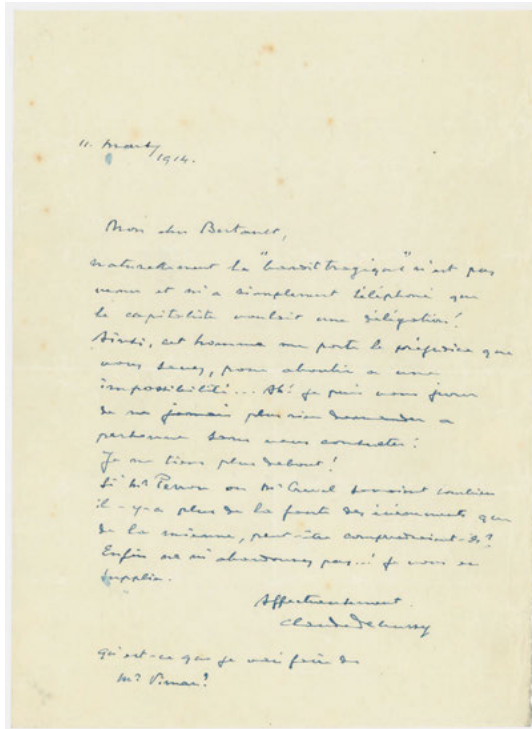 11. Mars/
1914.
Mon cher Bertault,
naturellement le "bandit tragique" n'est pas
venu et m'a simplement téléphoné que
le capitaliste voulait une délégation!
Ainsi, cet homme me porte le préjudice que
vous savez, pour aboutir à une
impossibilité... Ah! je puis vous jurer
de ne jamais plus rien demander a
personne sans vous consulter!
Je ne tiens plus debout!
Si Mr Perron ou Mr savaient combien
il-y-a plus de la faute des événements que
de la mienne, peut-être comprendraient-ils?
Enfin ne m'abandonnez pas...! je vous en
supplie.
Affectueusement.
Claude Debussy
qu'est-ce que je vais faire de
Mr ?